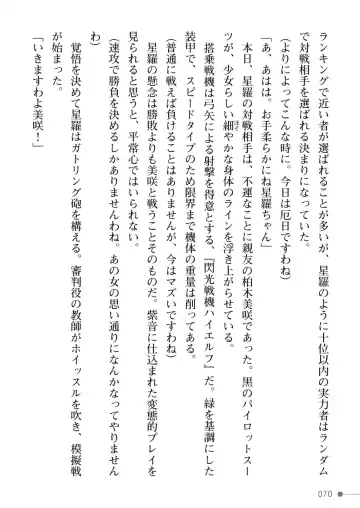 ランキングで近い者が選ばれることが多いが、星羅のように十位以内の実力者はランダム
で対戦相手を選ばれる決まりになっていた。
（よりによってこんな時に。今日は厄日ですわね）
「あ、あはは。お手柔らかにね星羅ちゃん」
本日、星羅の対戦相手は、不運なことに親友の柏木美咲であった。黒のパイロットスー
ツが、少女らしい細やかな身体のラインを浮き上がらせている。
搭乗戦機は弓矢による射撃を得意とする、『閃光戦機ハイエルフ』だ。緑を基調にした
装甲で、スピードタイプのため限界まで機体の重量は削ってある。
（普通に戦えば負けることはありませんが、今はマズいですわね）
星羅の懸念は勝敗よりも美咲と戦うことそのものだ。紫音に仕込まれた変態的プレイを
見られると思うと、平常心ではいられない。
（速攻で勝負を決めるしかありませんわね。あの女の思い通りになんかなってやりません
わ）
覚悟を決めて星羅はガトリング砲を構える。審判役の教師がホイッスルを吹き、模擬戦
が始まった。
「いきますわよ美咲！」
070